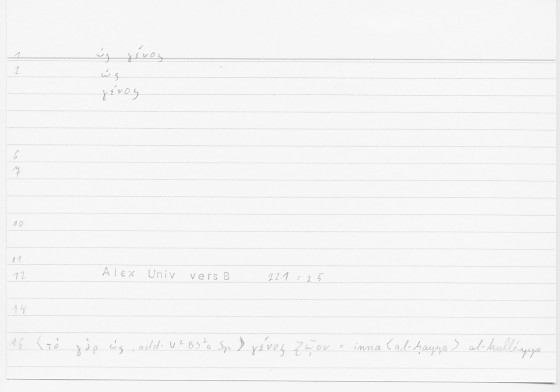 1 ὡς γένος
2 ὡς
γένος
6
7
10
11
12 Alex Univ vers B 221 : 25
14
16 (τὸ γὰρ ὡς add. Sp.) γένος ζῷον = inna (al-ḥayya) al-kulliyya